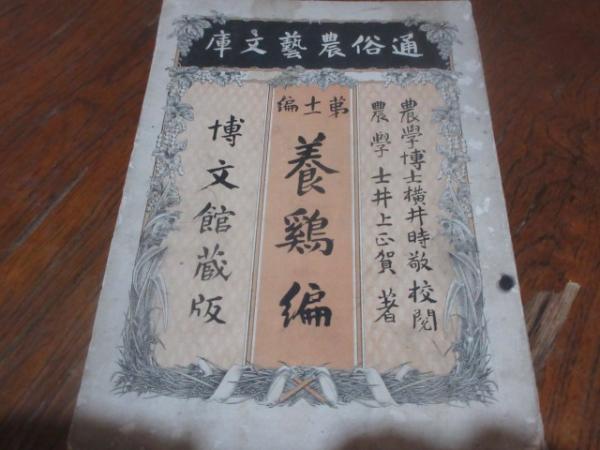 通俗農藝文庫
農學博士横井時敬校閲
農學士井上正賀著
第十一編
養鷄編
博文館蔵版